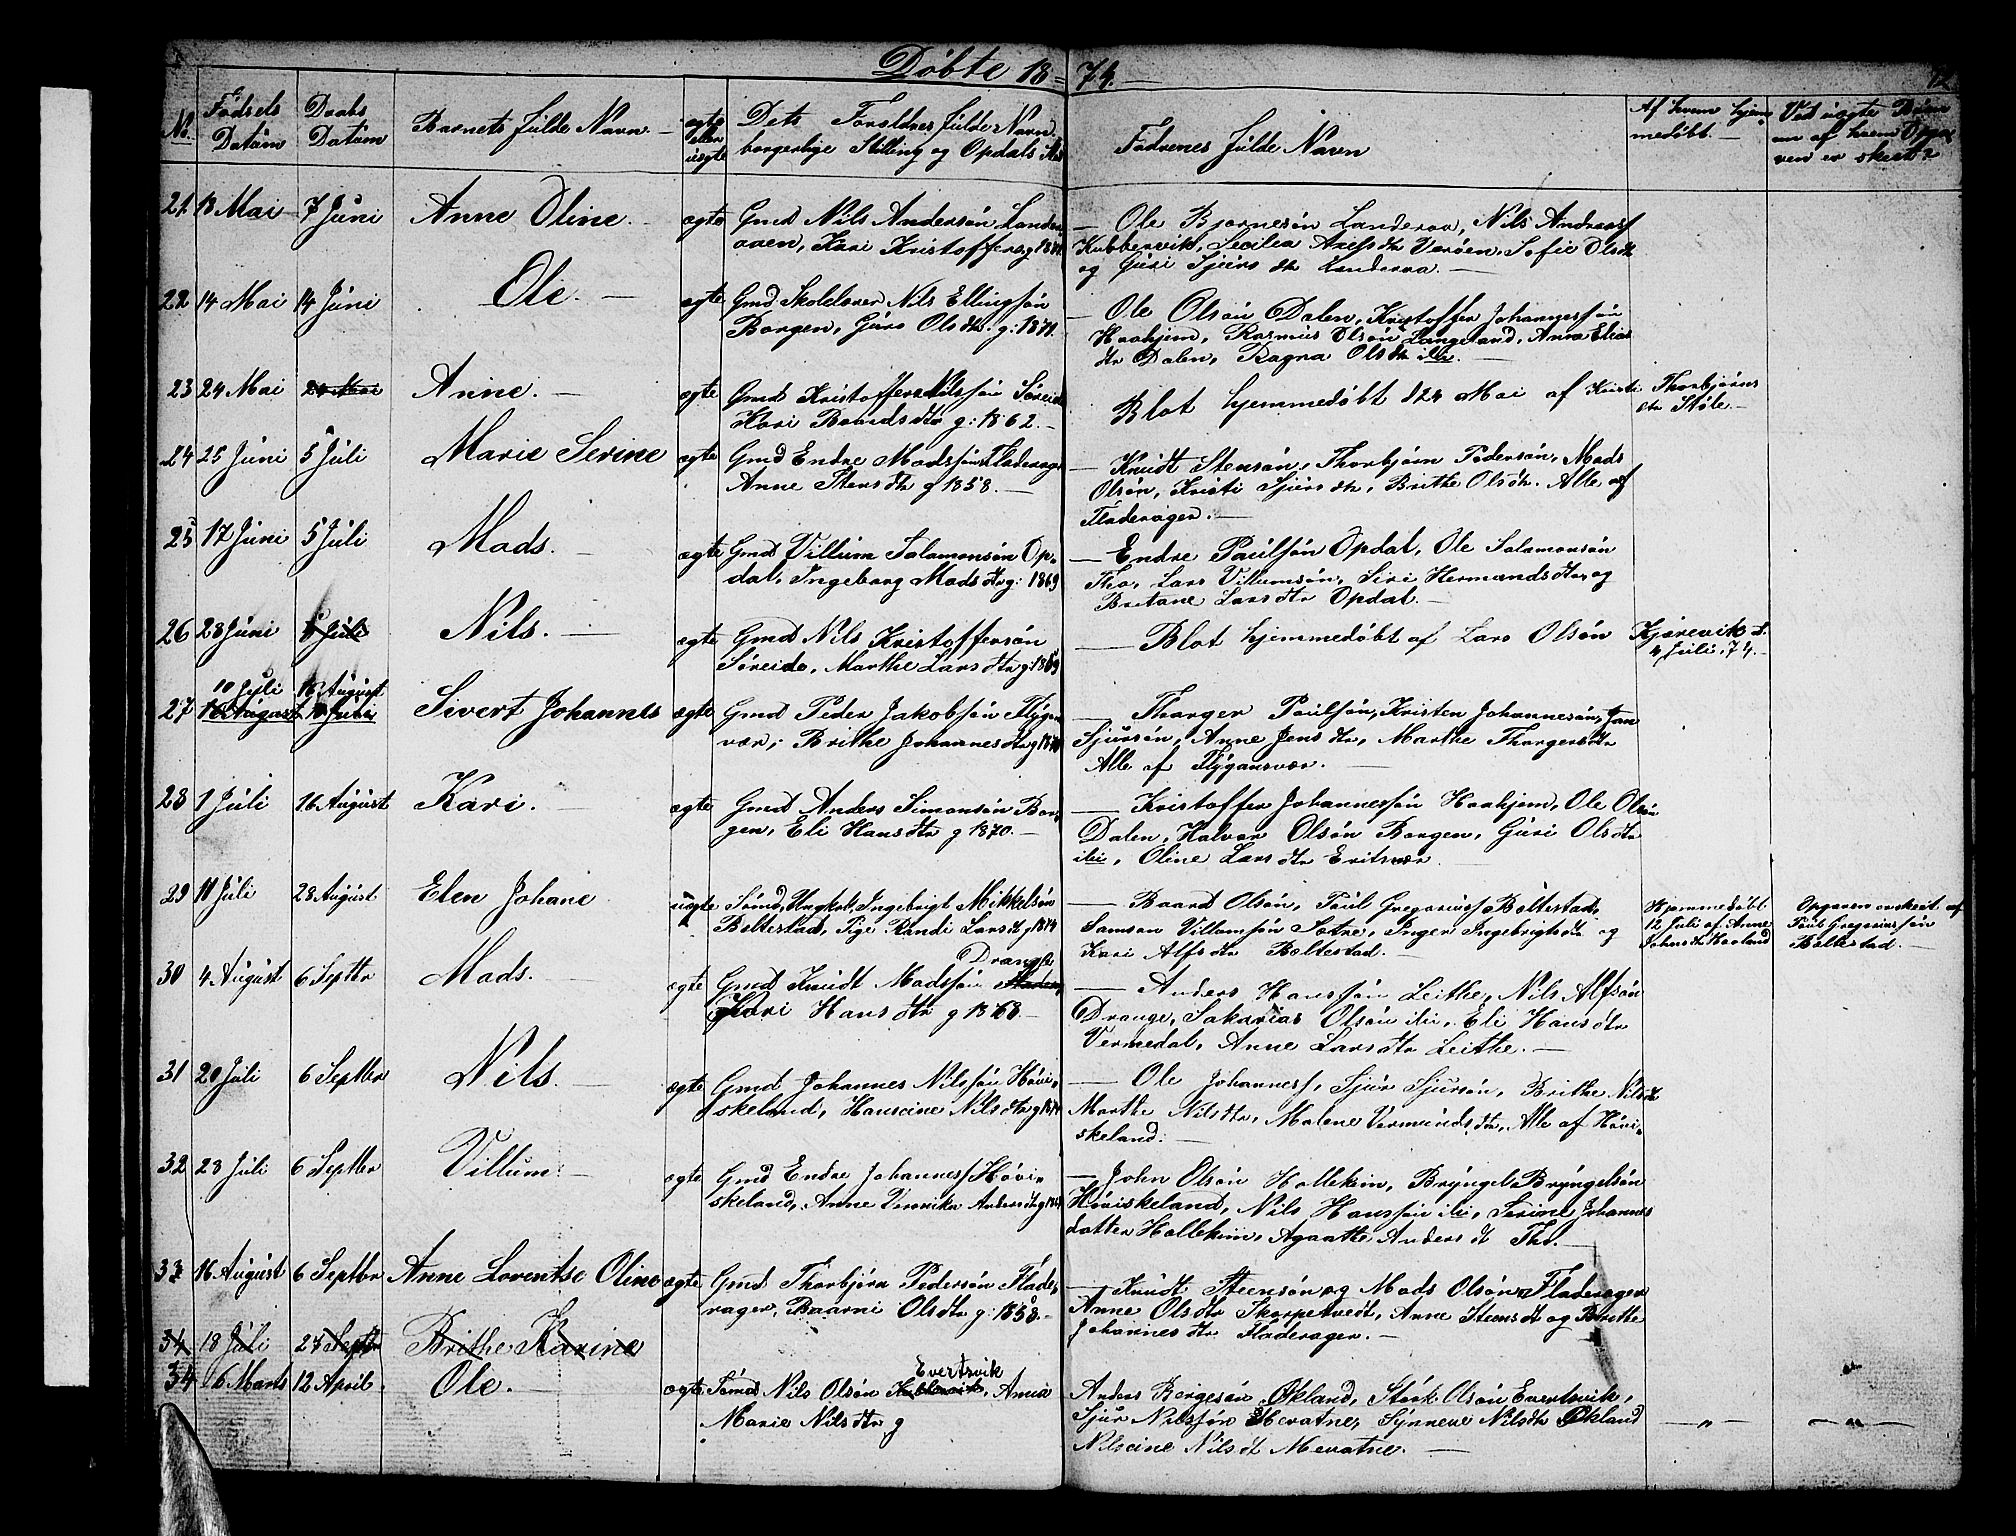 Døbte 18 74.
No. Fødsels Datum Daabs Datum Barnets fulde Navn ægte eller uægte Dets Forældres fulde Navn borgerlige Stilling og Opdals Fadrenes fulde Navn Af hvem hjemmedøbt Ved uægte Børn af hvem er skeet?
21. 13 Mai 7 Juni Anne Oline. ægte Gmd Nils Andersön
Kari Kristoffers
Ole Bjørnesøn Landeraa, Nils Andreasf
Kubbervik, Secilia Axelsdtr Sofie Olsdtr
og Guri Sjursdtr Landeraa.
22 14 Mai 14 Juni Ole. ægte Gmd Skolelærer Nils Ellingsøn
Borgen, Guro Olsdtr. g: 1871.
Ole Olsøn Dalen, Kristoffer Johannessøn
Haahjem, Rasmus Olsøn Langeland, Anna Elias
dtr Dalen, Ragna Olsdtr ibi.
23 24 Mai 24 Mai Anne. ægte Gmd Kristoffer Nilssøn Søreide
Kari Baardsdtr g: 1862.
Blot hjemmedøbt d 24 Mai af Kristi Thorbjørns
dtr Støle.
24 25 Juni 5 Juli Marie Serine ægte Gmd Endre Madssøn Fladerager
Anne Stensdtr g 1858.
Knudt Stensøn, Thorbjørn Pedersøn, Mads
Olsøn, Kristi Sjursdtr, Brithe Olsdtr. Alle af
Fladerager.
25 17 Juni 5 Juli Mads. ægte Gmd Villum Salamonsøn Op-
dal, Ingeborg Madsdtr g: 1869
Endre Paulsøn Opdal, Ole Salamonsøn
Tho, Lars Villumsøn, Siri Hermandsdtr og
Britane Larsdtr Opdal.
26 28 Juni 5 Juli Nils. ægte Gmd Nils Kristoffersøn
Søreide, Marthe Larsdtr g: 1869
Blot hjemmedøbt af Lars Olsøn Kjørevik d.
4 Juli, 74.
10 Juli 16 August
27 16 August 10 Juli Sivert Johannes ægte Gmd Peder Jakobsøn Flygans
vær, Brithe Johannesdtr
Thorger Paulsøn, Kristen Johannesøn, Jan
Sjursøn, Anne Jensdtr, Marthe Thorgersdtr
Alle af Flygansvær.
28 1 Juli 16 August Kari. ægte Gmd Anders Simonsøn Bor-
gen, Eli Hansdtr g 1870.
Kristoffer Johannessøn Haahjem, Ole Olsøn
Dalen, Halvor Olsøn Borgen, Guri Olsdtr
ibi, Oline Larsdtr
29 11 Juli 28 August Elen Johane uægte Sømd, Ungkal, Ingebrigt Mikkelsøn
Boltestad, Pige Randi Larsdtr
Baard Olsøn, Poul Gregoriusf Boltestad,
Samson Villumsøn Sætre, Inger Ingebrigtsdtr og
Kari Alfsdtr Boltestad.
Hjemmedøbt
12 Juli af Anne
Opgaven er skeet af
Poul Gregoriussøn
Boltestad.
30 4 August 6 Septbr Mads. ægte Gmd Knudt Madssøn Drange
Kari Hansdtr g 1868.
Anders Hanssøn Leithe, Nils Alfsøn
Drange, Sakarias Olsøn ibi, Eli Hansdtr
Vermedal, Anne Larsdtr Leithe.
31 20 Juli 6 Septbr Nils. ægte Gmd Johannes Nilssøn Høvi-
skeland, Hanscine Nilsdtr
Ole Johannesf, Sjur Sjursøn, Brithe Nilsdtr
Marthe Nilsdtr, Malene Vermundsdtr, Alle af Høvi-
skeland.
32 23 Juli 6 Septbr Villum. ægte Gmd Endre Johannesf Høvi-
skeland, Anne Veronika Andersdtr
John Olsøn Hollekim, Bryngel Bryngelsøn
Høviskeland, Nils Hanssøn ibi, Serine Johannes
datter Hollekim, Agaathe Andersdt Tho.
33 16 August 6 Septbr Anne Lorentse Oline ægte Gmd Thorbjørn Pedersøn Flade-
rager, Baarni Olsdtr g: 1858.
Knudt Steensøn og Mads Olsøn Fladerager
Anne Olsdtr Skorpetvedt, Anne Steensdt og Brithe
Johannesdtr Fladerager.
34 18 Juli 27 Septbr Brithe Karine
34 6 Marts 12 April Ole. ægte Sømd Nils Olsøn Evertsvik, Anna
Marie Nilsdtr g
Anders Børgesøn Økland, Størk Olsøn Evertsvik,
Sjur Nilssøn Mevatne, Synneve Nilsdtr Økland
Nilscine Nilsdt Mevatne.